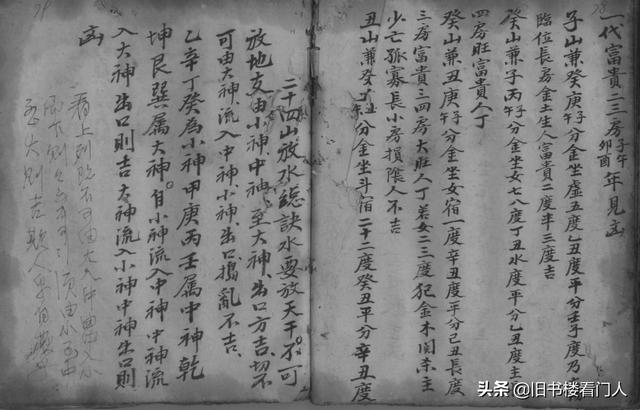 一代富貴二三房子午卯酉年見凶
子山兼癸庚子午分金坐虛五度乙丑度平分壬子度乃
臨位長房金土生人富貴二度半三度吉
癸山兼子丙子午分金坐女七八度丁丑水度平分乙丑度主
四房旺富貴人丁
癸山兼丑庚子午分金坐女宿一度辛丑度平分己丑長度
三房富貴三四房大旺人丁若女二三度犯金木関杀主
少亡孤寡長小房損陰人不吉
丑山兼癸丁丑分金坐斗宿二十二度癸丑平分辛丑度
二十四山放水總訣水要放天干不可
放地支由小神中神至大神出口方吉切不
可由大神流入中神小神出口搗亂不吉
乙辛丁癸為小神甲庚丙壬属中神乾
坤艮巽属大神自小神流入中神中神流
入大神出口則吉大神流入小神中神出口則
凶
看上列
至大則吉
78
79
头条 @旧书楼看门人